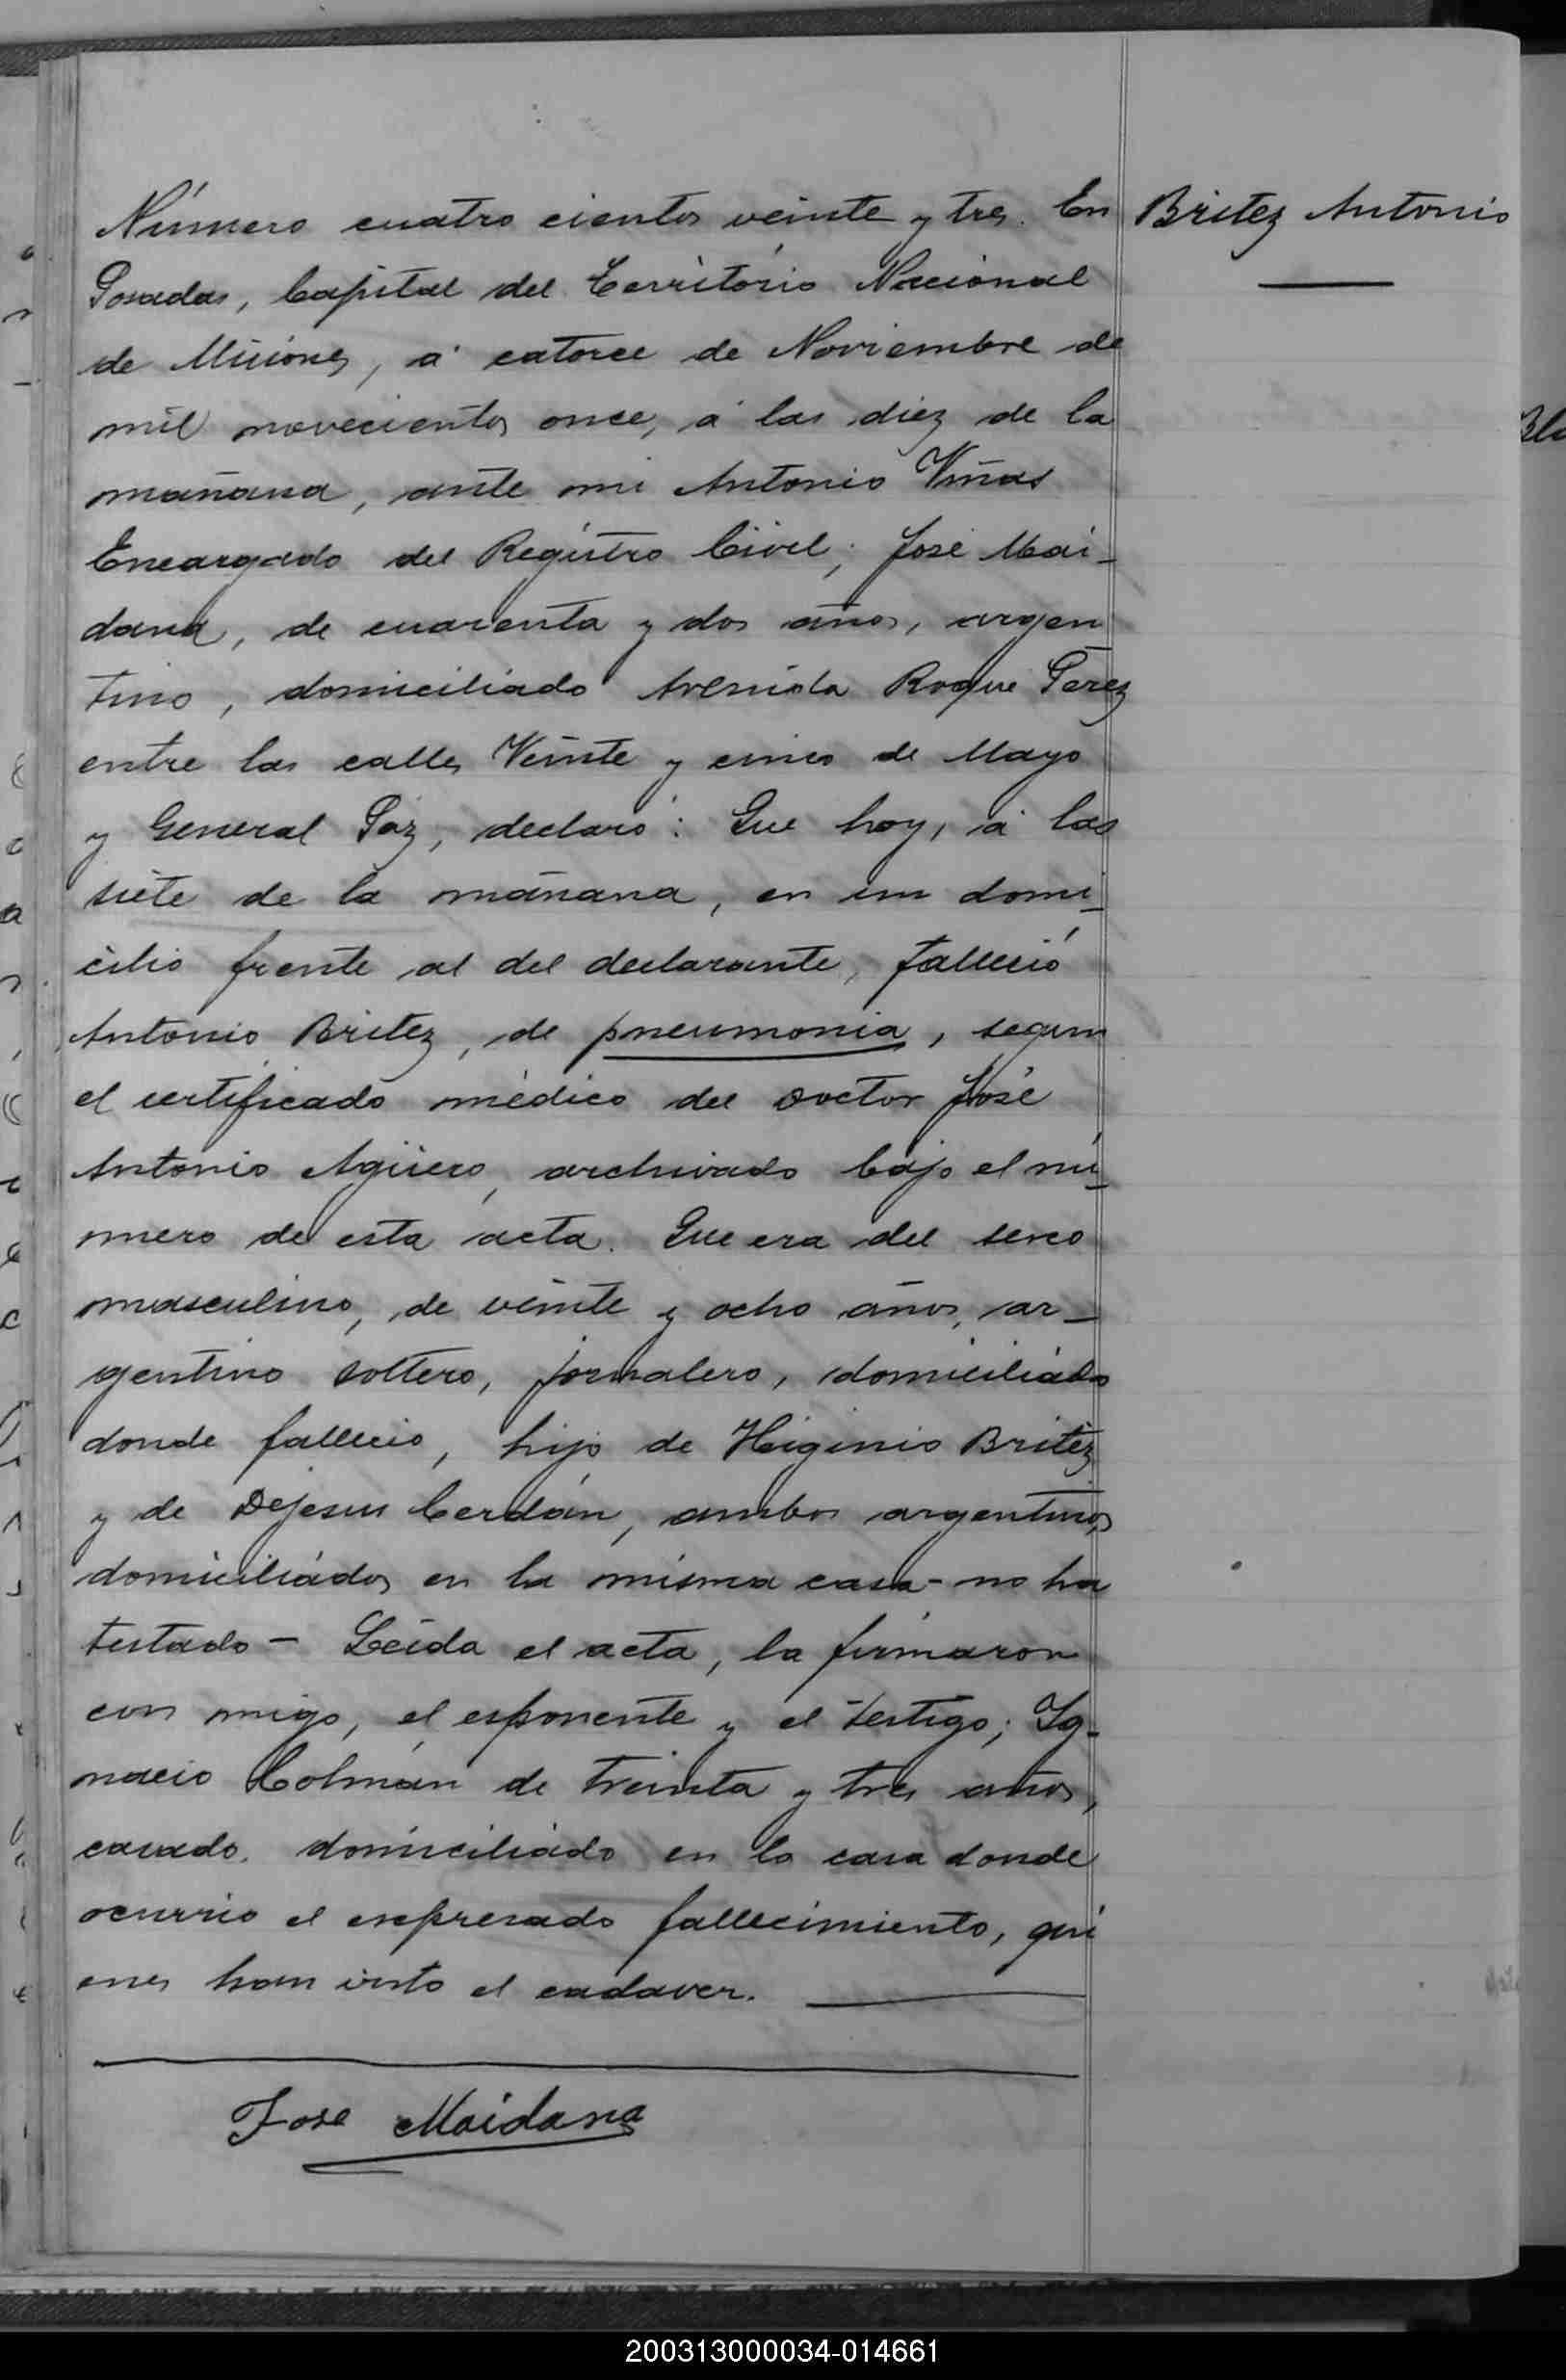 Número cuatro cientos veinte y tres. En
Britez Antonio
Posadas, Capital del Territorio Nacional
de Misiones, á catorce de Noviembre de
mil novecientos once, á las diez de la
mañana, ante mi Antonio Viñas
Encargado del Registro Civil; José Mai-
dana, de cuarenta y dos años, argen
tino, domiciliado Avenida Roque Perez
entre las calles Veinte y cinco de Mayo
y General Paz, declaró: Que hoy, á las
siete de la mañana, en un domi-
cilio frente al del declarante, falleció
Antonio Britez, de pneumonia, segun
el certificado médico del Doctor José
Antonio Agüero, archivado bajo el nú-
mero de esta acta. Que era del sexo
masculino, de veinte y ocho años, ar-
gentino soltero, jornalero, domiciliado
donde fallecio, hijo de Higinio Britez
y de Dejesus Cerdán, ambos argentinos,
domiciliados en la misma casa - no ha
testado - Leida el acta, la firmaron
con migo, el esponente y el testigo; Ig-
nacio Colmán de treinta y tres años,
casado, domiciliado en la casa donde
ocurrio el expresado fallecimiento, qui
enes han visto el cadaver.
Jose Maidana
200313000034-014661